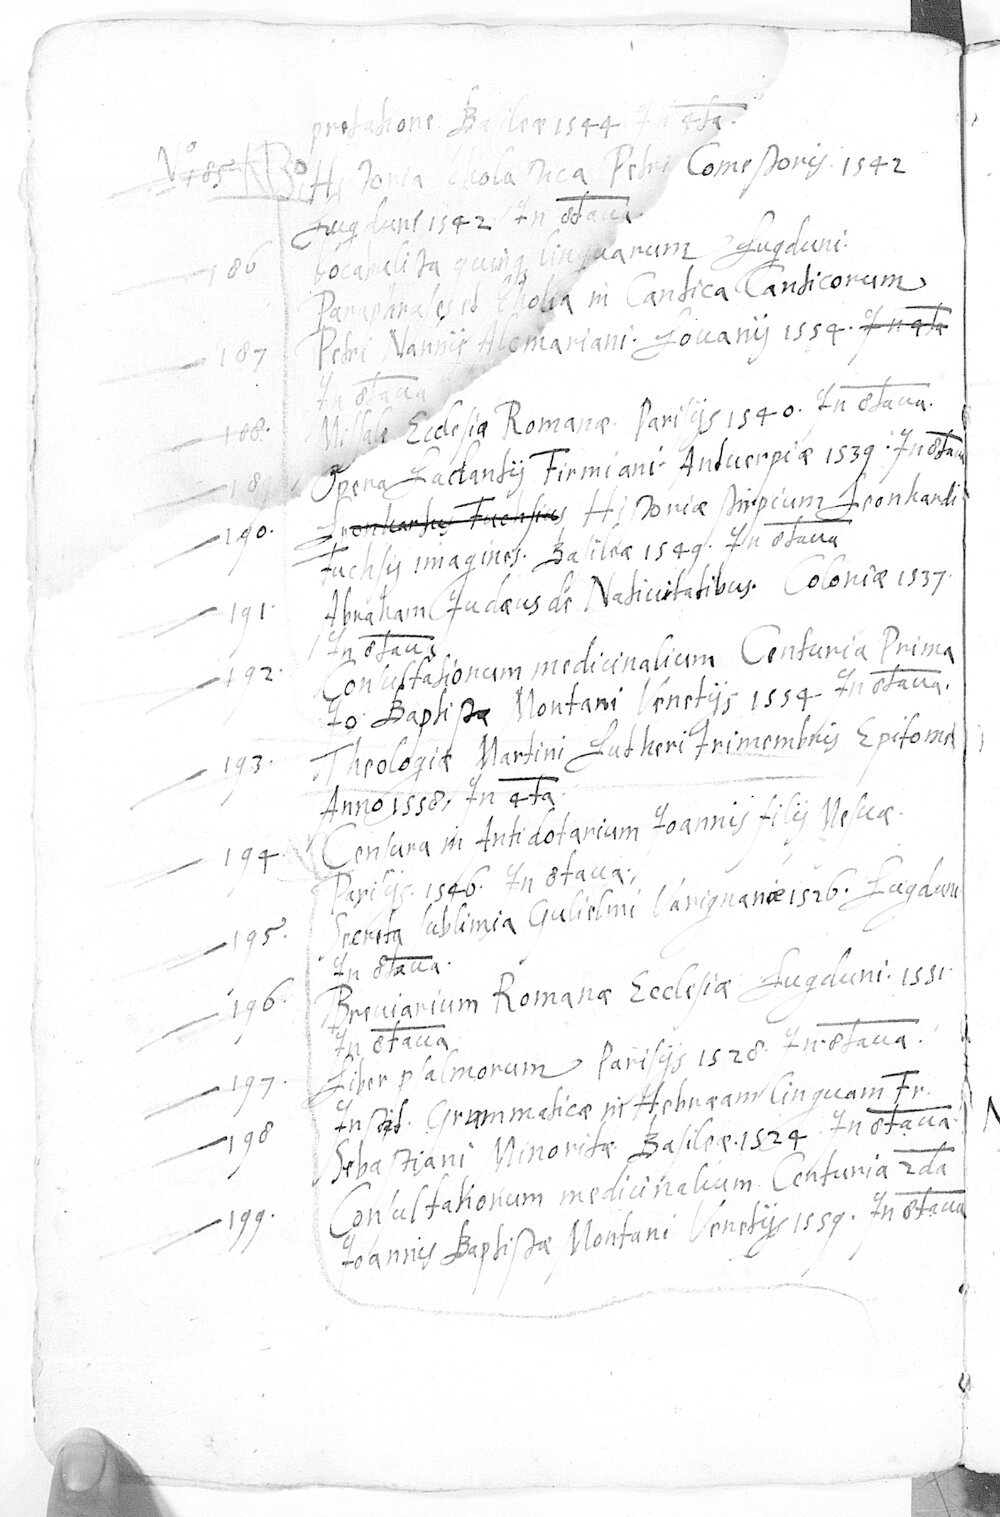 pretatione. Basileæ 1544 In 4ta.
No 185 Historia scholastica Petri Comestoris. 1542
Lugduni 1542. In 8taua.
186 Vocabulista quinq linguarum Lugduni.
Paraphrases et scholia in Cantica Canticorum
187 Petri Nannij Alcmariani. Louanij 1554. In 4ta
In 8taua
188. Missale Ecclesiæ Romanæ. Parisijs 1540. In 8taua.
189 Opera Lactantij Firmiani. Antuerpiæ 1539. In 8taua
190. Leonhartus Fuchsius Historiæ stirpium Leonhardi
Fuchsij imagines. Basileæ 1549. In 8taua
191. Abraham Judæus de Natiuitatibus. Coloniæ 1537.
In 8taua
192. Consultationum medicinalium Centuria Prima
Jo Baptista Montani Venetijs 1554 In 8taua.
193. Theologiæ Martini Lutheri trimembris Epitome
Anno 1558, In 4ta.
194. Censura in Antidotarium Joannis filij Mesuæ.
Parisijs. 1546. In 8taua.
195. Secreta sublimia Gulielmi Varignanæ 1526. Lugduni
In 8taua.
196. Breuiarium Romanæ Ecclesiæ Lugduni. 1551.
In 8taua
197. Liber psalmorum Parisijs 1528. In 8taua.
198 Instit. Grammaticæ in Hebræam linguam Fr.
Sebastiani Minoritæ Basileæ. 1524 In 8taua.
199. Consultationum medicinalium Centuria 2da
Joannis Baptistæ Montani Venetijs 1559. In 8taua